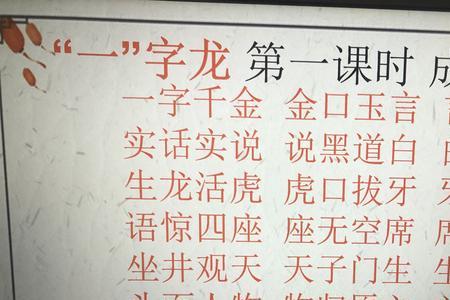 “一”字龙 第一课时
一字千金 金口玉言
实话实说 说黑道白
生龙活虎 虎口拔牙
语惊四座 座无空席
坐井观天 天子门生